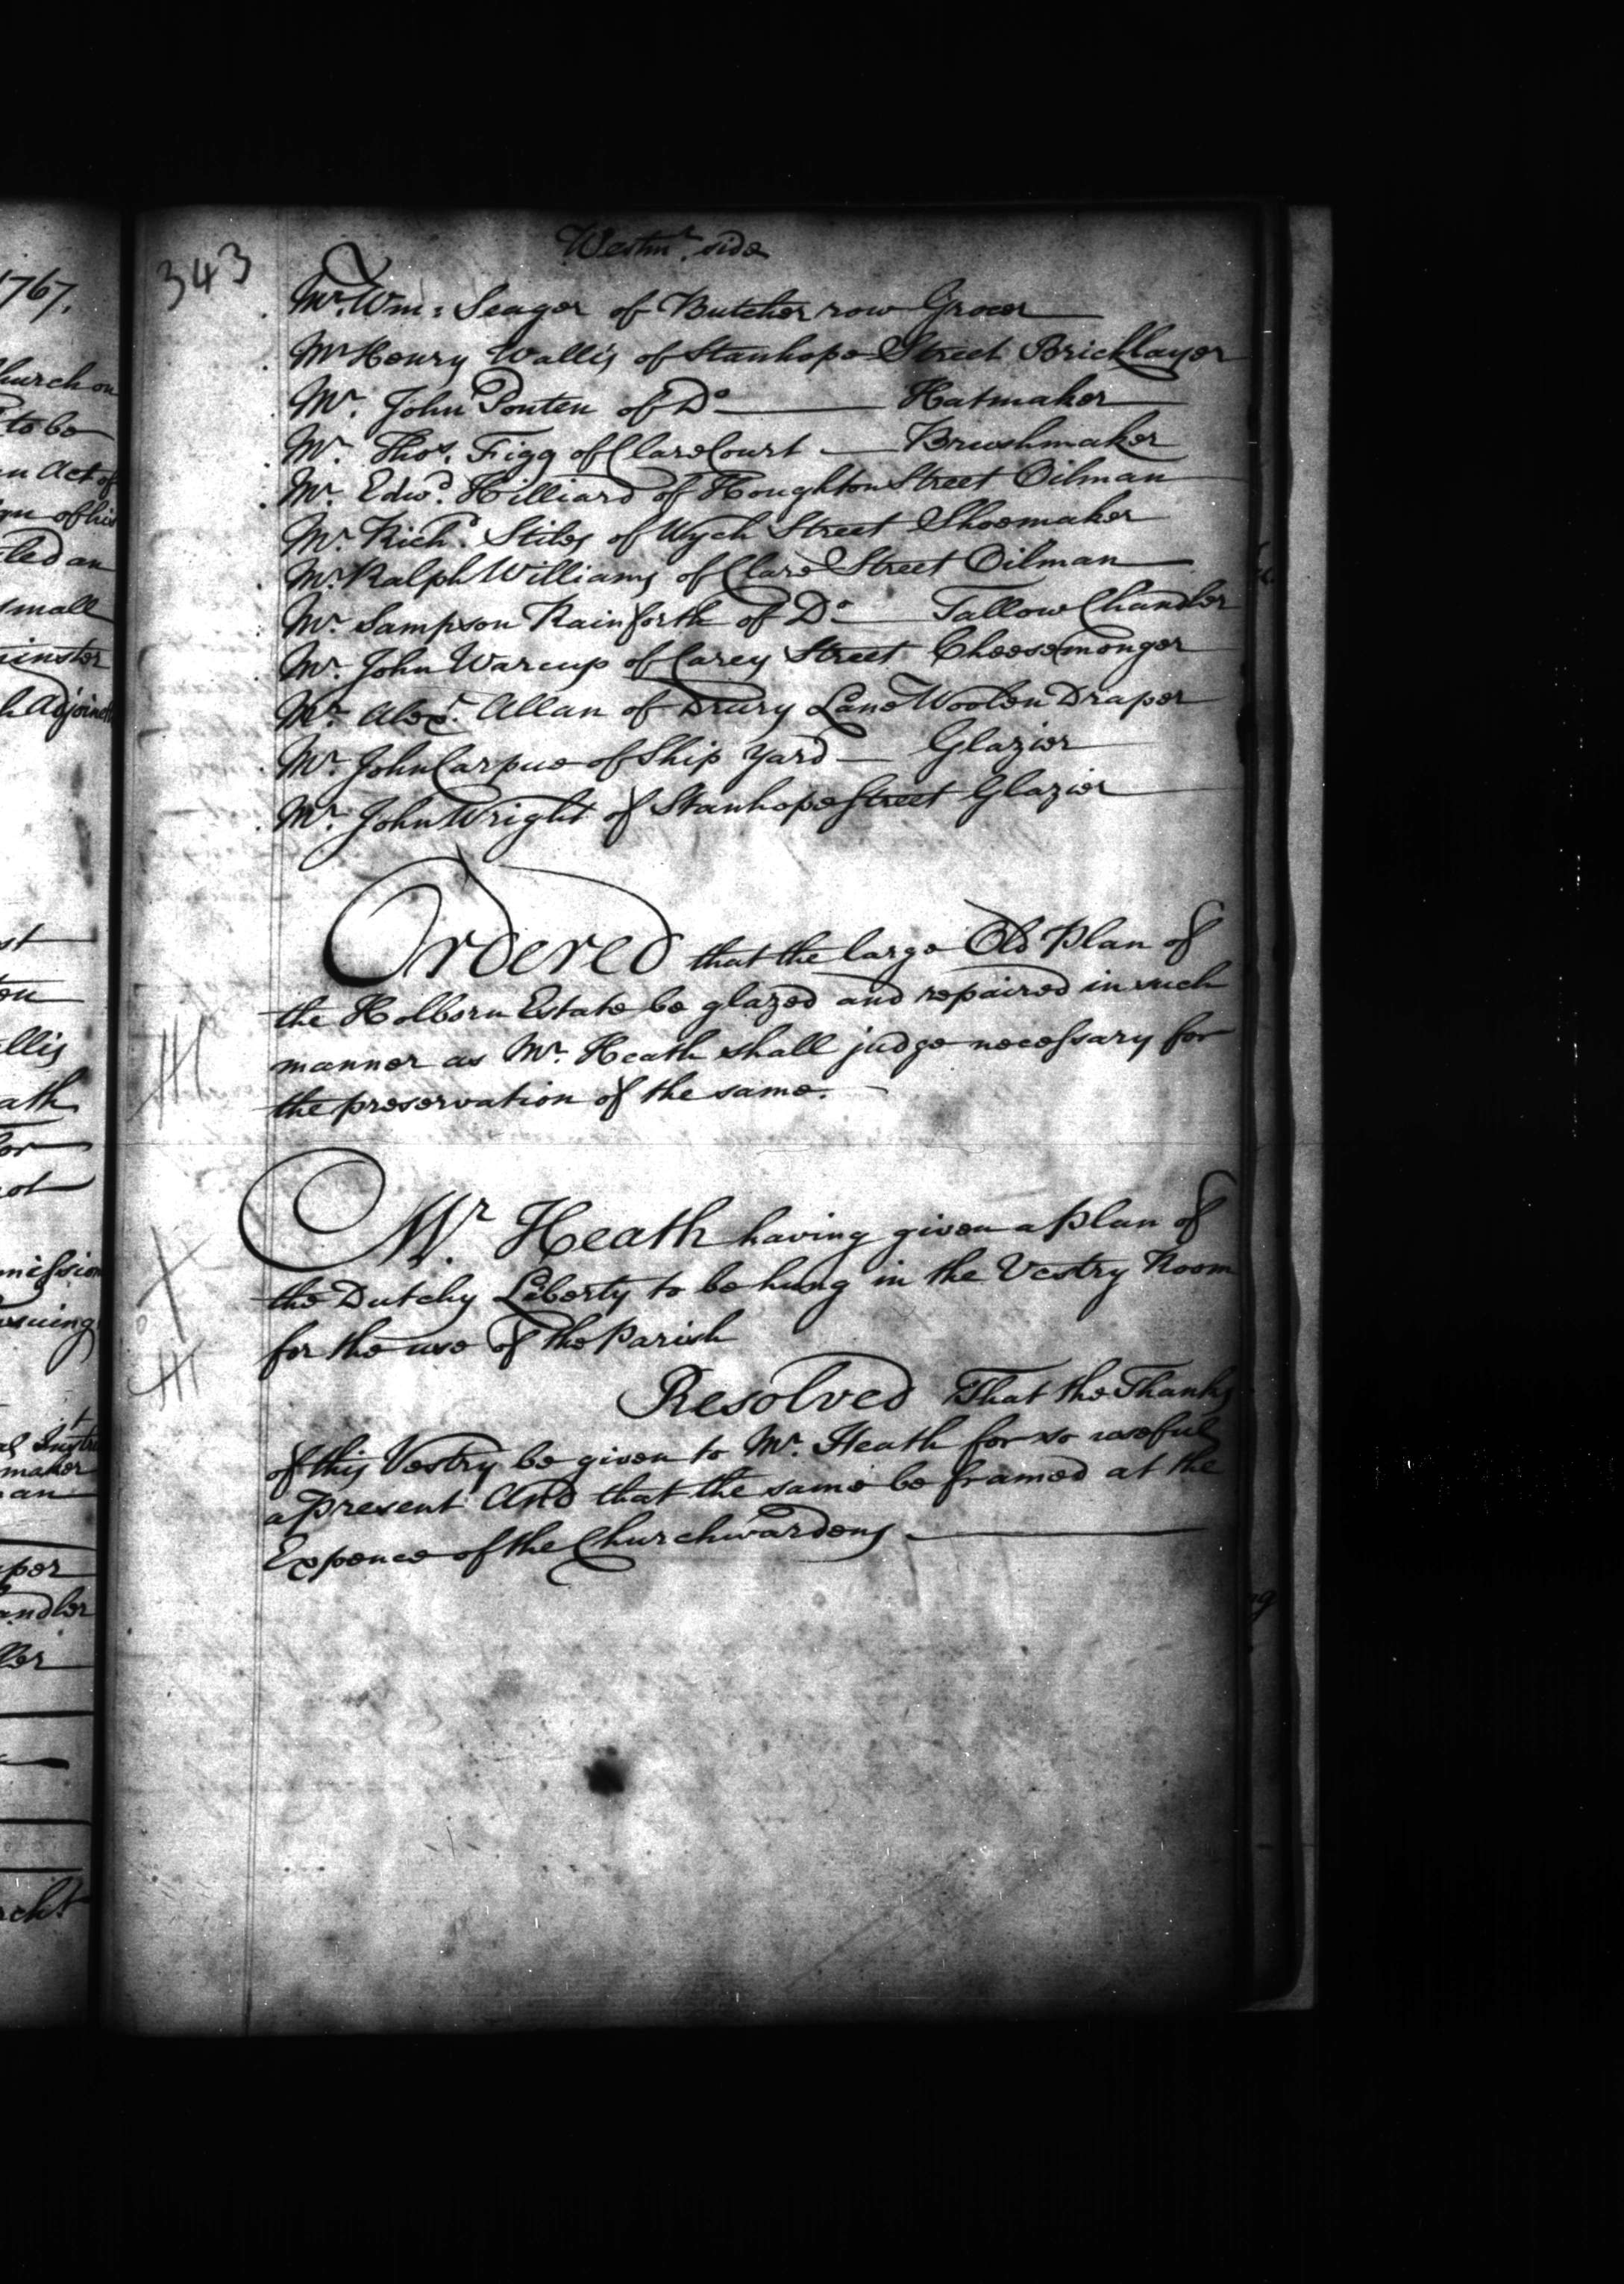 1767.
343
Westmr. side
Mr. Wm: Seager of Butcher row Grocer
Mr Henry Wallis of Stanhope Street Bricklayer
Mr. John Ponten of Do Hatmaker
Mr. Thos. Figg of Clare Court Brushmaker
Mr. Edwd. Hilliard of Houghton Street Oilman
Mr. Richd. Stiles of Wych Street Shoemaker
Mr. Ralph Williams of Clare Street Oilman
Mr. Sampson Rainforth of Do Tallow Chandler
Mr. John Warcup of Carey Street Cheesemonger
Mr. Alexr. Allan of Drury Lane Woolen Draper
Mr. John Carpue of Ship Yard Glazier
Mr. John Wright of Stanhope Street Glazier
Ordered that the large Old Plan of
the Holborn Estate be glazed and repaired in such
manner as Mr. Heath shall judge necessary for
the preservation of the same.
Mr. Heath having given a Plan of
the Dutchy Liberty to be hung in the Vestry Room
for the use of the Parish
Resolved That the Thanks
of this Vestry be given to Mr. Heath for so useful
a Present And that the same be framed at the
Expence of the Churchwardens